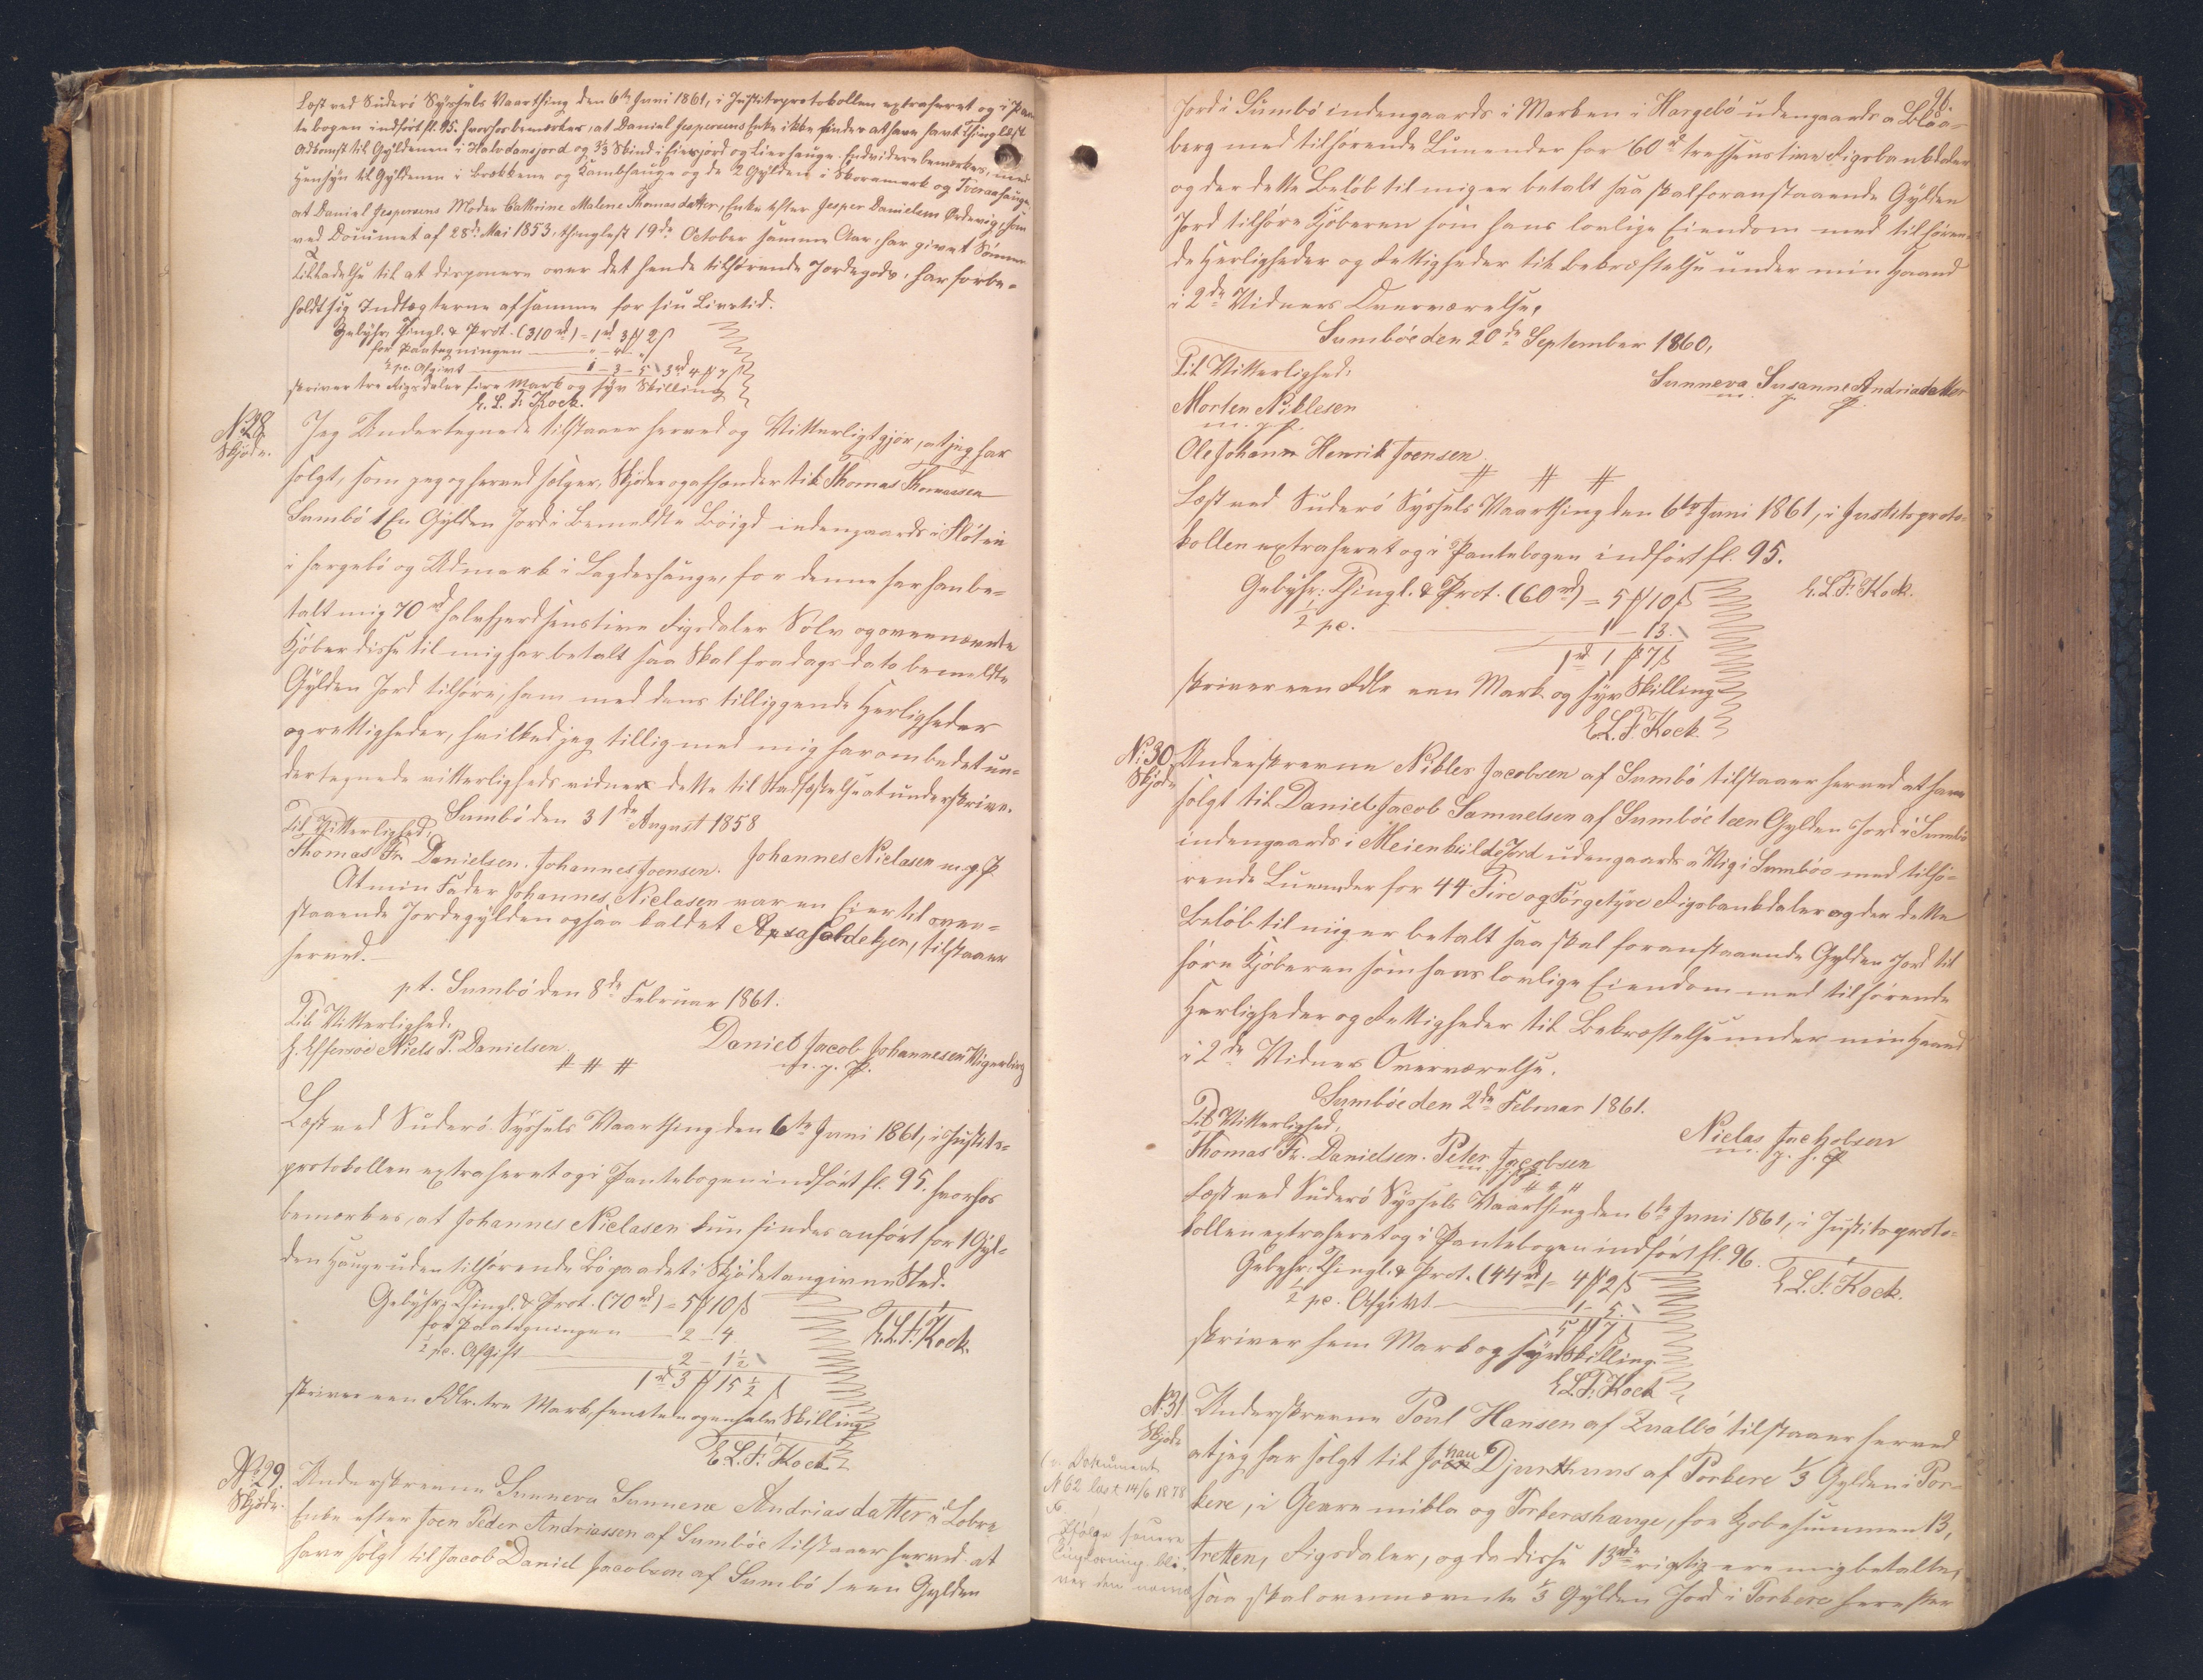 Læst ved Suderø Syssels Vaarthing den 6te Juni 1861, i Justitsprotokollen extraheret og i Pan-
tebogen indført fl. 95. hvorhos bemærkes, at Daniel Jespersens Enke ikke findes at have havt Thinglæst
Adkomst til Gyldenen i Halvdansjord og 3⅓ Skind i Eiersjord og Lierhauge. Endvidere bemærkes, med
Hensyn til Gyldenen i Brekkene og Kambhauge og de 2 Gylden i Skoramark og Tveraahauge,
at Daniel Jespersens Moder Cathrine Malene Thomasdatter, Enke efter Jesper Danielsen Ordevig, som
ved Document af 28de Mai 1853, thinglæst 19de October samme Aar, har givet Sønnen
Tilladelse til at disponere over det hende tilhørende Jordegods, har forbe-
holdt sig Indtægterne af samme for sin Livstid.
Gebyhr: Thingl. & Prot. (310 rd) = 1 rd 3 ℳ 2 ß
for Paategningen
½ pc. Afgivt 1 – 3 – 5 3 rd 4 ℳ 7 ß
skriver tre Rigsdaler fire Mark og syv Skilling
E. L. F. Kock.
No 28
Skjøde.
Jeg Undertegnede tilstaaer herved og Vitterligtgjør, at jeg har
solgt, som jeg og herved sælger, Skjøder og afhænder til Thomas Thomassen
Sumbø 1 En Gylden Jord i Bemeldte Bøigd indengaards i Fløtin
i hargebø og Udmark i Lagdeshauge, for denne har han be-
talt mig 70 rd halvfjerdsenstive Rigsdaler Sølv og ovennævnte
Kjøber disse til mig har betalt saa Skal fra dags dato bemeldte
Gylden Jord tilhøre, ham med dens tilliggende Herligheder
og rettigheder, hvilket jeg tillig med mig har ombedet un-
dertegnede vitterligheds vidner dette til Stadfæstelse at underskrive.
Sumbø den 31de August 1858
Til Vitterlighed:
Thomas Fr. Danielsen. Johannes Joensen. Johannes Niclasen m. g. P.
At min Fader Johannes Niclasen var en Eier til oven-
staaende Jordegylden ogsaa kaldet, tilstaaer
herved.
pt. Sumbø den 8de Februar 1861.
Til Vitterlighed:
Niels P. Danielsen. Daniel Jacob Johannesen
m. g. P.
# # #
Læst ved Suderø Syssels Vaarthing den 6te Juni 1861, i Justits-
protokollen extraheret og i Pantebogen indført fl. 95. hvorhos
bemærkes, at Johannes Niclasen kun findes anført for 1 Gyl-
den Hauge uden tilhørende Bø paa det i Skjødet angivne Sted.
Gebyhr: Thingl. & Prot. (70 rd) = 5 ℳ 10 ß
for Paategningen 2 – 4
½ pc. Afgift 2 – 1½
1 rd 3 ℳ 15½ ß
E. L. F. Kock.
skriver een Rdlr. tre Mark, femten og en halv Skilling
E. L. F. Kock
No 29.
Skjøde.
Underskrevne Sunneva Sunneve Andriasdatter i Lobra
Enke efter Joen Peder Andriassen af Sumbøe tilstaaer herved at
have solgt til Jacob Daniel Jacobsen af Sumbø 1 een Gylden
96.
Jord i Sumbø indengaards i Marken i Hargebø udengaards a Blaa-
berg med tilhørende Lunender for 60 rd tressenstive Rigsbankdaler
og der dette Beløb til mig er betalt saa skal foranstaaende Gylden
Jord tilhøre Kjøberen som hans lovlige Eiendom med tilhøren-
de Herligheder og Rettigheder til bekræftelse under min Haand
i 2de Vidners Overværelse,
Sumbøe den 20de September 1860,
Til Vitterlighed:
Sunneva Susanne Andriadatter
m. g. P.
Morten Niklesen
m. g. P.
Ole Johann Henrik Joensen
# # #
Læst ved Suderø Syssels Vaarthing den 6te Juni 1861, i Justitsproto-
kollen extraheret og i Pantebogen indført fl. 95.
Gebyhr: Thingl. & Prot. (60 rd) = 5 ℳ 10 ß
½ pc. 1 – 13.
1 rd 1 ℳ 7 ß
E. L. F. Kock.
skriver een Rdlr een Mark og syv Skilling
E. L. F. Kock.
No 30
Skjøde
Underskrevne Nikles Jacobsen af Sumbø tilstaaer herved at have
solgt til Daniel Jacob Samuelsen af Sumbøe 1 een Gylden Jord i Sumbø
indengaards i Meienbuildejord udengaards a Vig i Sumbøe med tilhø-
rende Lunender for 44 Fire og Førgetyve Rigsbankdaler og der dette
Beløb til mig er betalt saa skal foranstaaende Gylden Jord til
høre Kjøberen som hans lovlige Eiendom med tilhørende
Herligheder og Rettigheder til Bekræftelse under min Haand
i 2de Vidners Overværelse.
Sumbøe den 2de Februar 1861.
Til Vitterlighed,
Thomas Fr. Danielsen. Peter Jacobsen
m. g. P.
Niclas Jachobsen
m. g. f. P
# # #
Læst ved Suderø Syssels Vaarthing den 6te Juni 1861, i Justitsproto-
kollen extraheret og i Pantebogen indført fl. 96.
Gebyhr: Thingl. & Prot. (44 rd) = 4 ℳ 2 ß
½ pc. Afgivt 1 – 5
5 ℳ 7 ß
E. L. F. Kock.
skriver fem Mark og syv Skilling
E. L. F. Kock
No 31
Skjøde
Underskrevne Poul Hansen af Qvalbø tilstaaer herved
at jeg har solgt til Djurhuus af Porkere ⅓ Gylden i Por-
kere, i Geara mikla og Porkereshauge, for Kjøbesummen 13,
tretten, Rigsdaler, og da disse 13 rd rigtig ere mig betalte,
saa skal ovennævnte ⅓ Gylden Jord i Porkere herefter
(v. Dokument
N 62 læst 14/6 1878
Ifølge senere